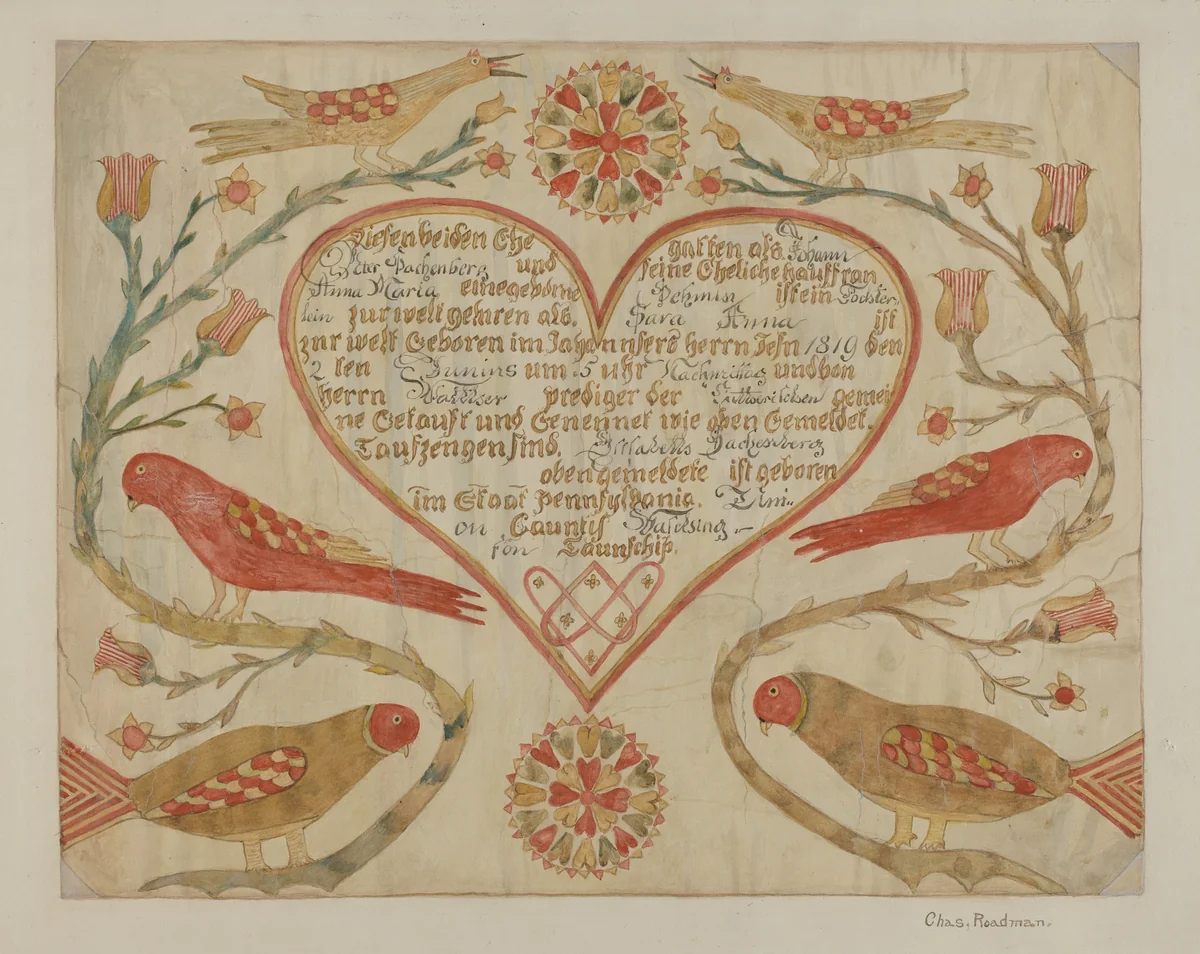 Diesen beiden Ehe gatten als Johann
Peter Dachenberg und seine Eheliche hauffrau
Anna Maria eine geborne ist ein Tochter,
lein zur welt gehren als. Sara Anna ist
zur welt Geboren im Jahr unsers herrn Jesu 1819 den
2 ten Junius um 5 uhr Nachmittag und von
herrn prediger der Lutherischen gemei
ne Getauft und Genennet wie oben Gemeldet.
Taufzeugen sind. Elisabeth Dachenberg
oben gemeldete ist geboren
im Staat Pennsylvania. Uni=
on Caunty Wasching=
ton Taunschip.
Chas. Roadman.